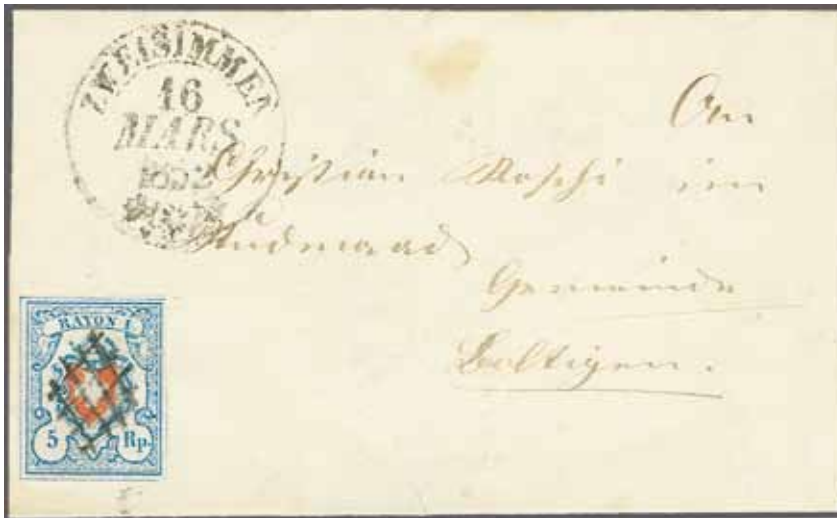 ZWEISIMMEN
16
MARS
1852
An
Christian im
Gemeinde
Boltigen.
RAYON I
5 Rp.